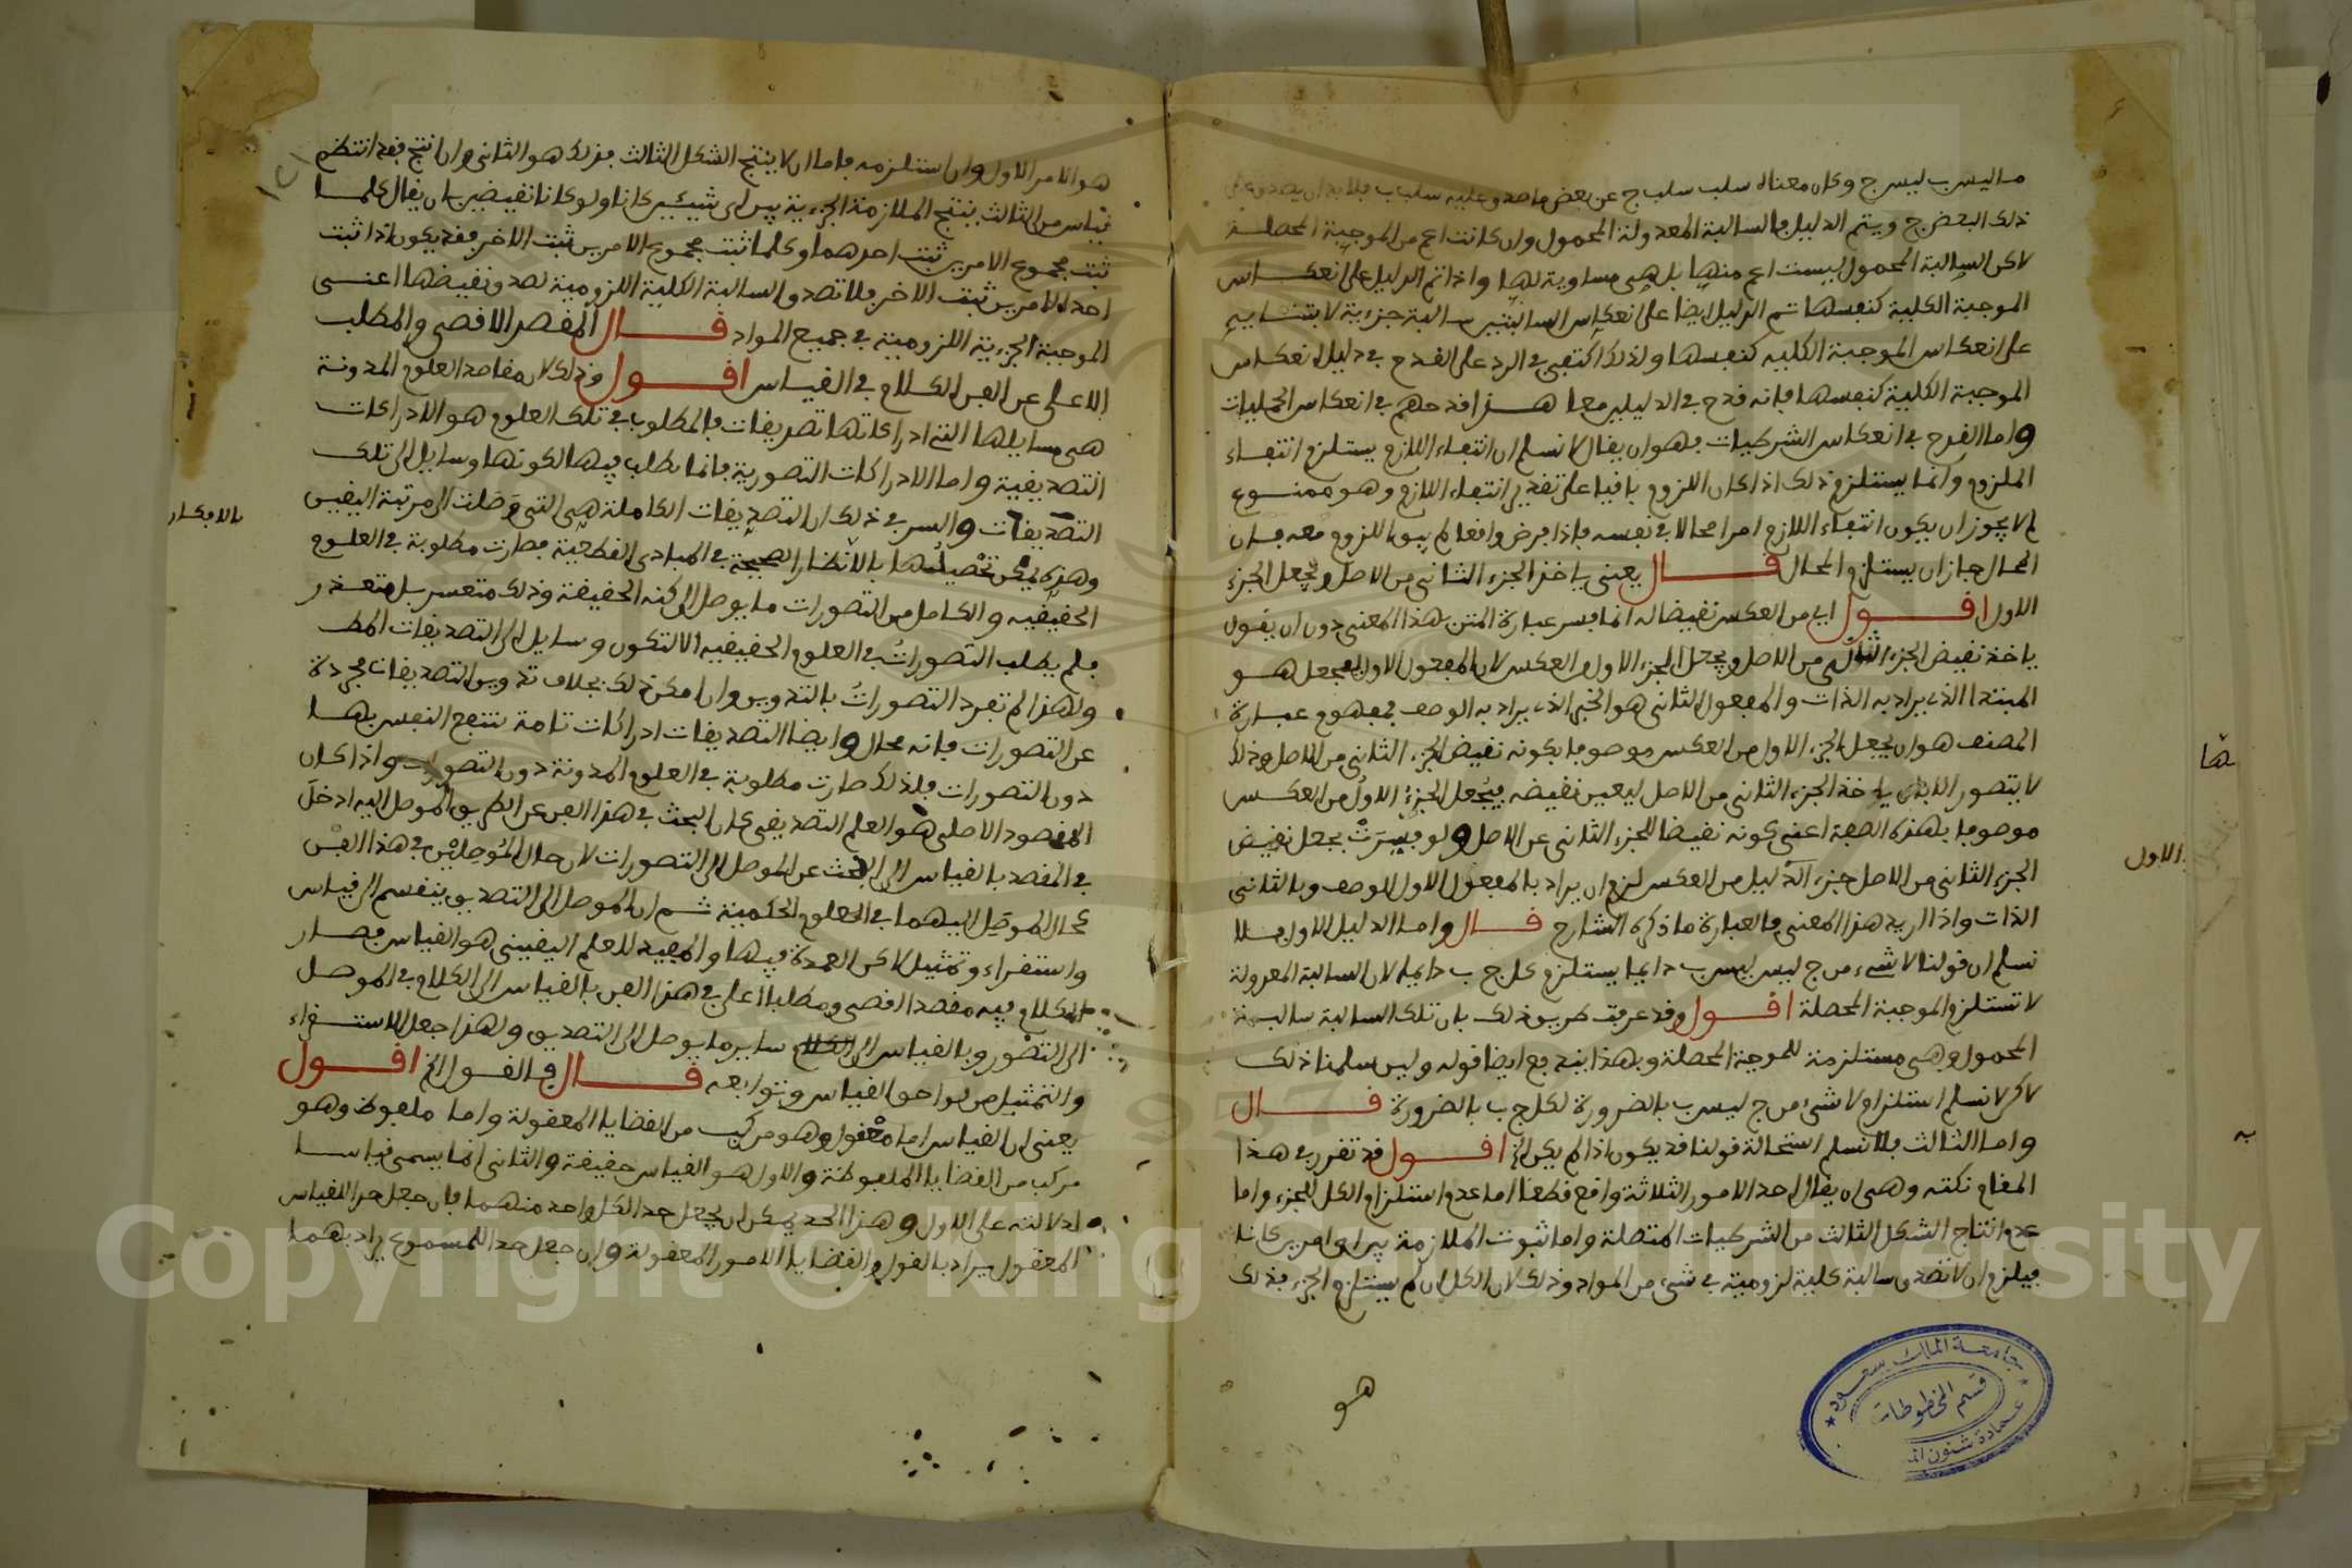 ما ليس ب ليس ج وكان معناه سلب سلب ج عن بعض ما صدق عليه سلب ب فلا بد ان يصدق على
ذلك البعض ج ويتم الدليل فالسالبة المعدولة المحمول وان كانت اعم من الموجبة المحصلة
لاكن السالبة المحمول ليست اعم منها بل هي مساوية لها واذا تم الدليل على انعكاس
الموجبة الكلية كنفسها تم الدليل ايضا على انعكاس السالبتين سالبة جزءية لابتنائه
على انعكاس الموجبة الكليه كنفسها ولذلك اكتفى في الرد على القدح في دليل انعكاس
الموجبة الكلية كنفسها فانه قدح في الدليلين معا هذا قدحهم في انعكاس الحمليات
واما القدح في انعكاس الشرطيات فهو ان يقال لا نسلم ان انتفاء اللازم يستلزم انتفاء
الملزوم وانما يستلزم ذلك اذا كان اللزوم باقيا على تقدير انتفاء اللازم وهو ممنوع
لم لا يجوز ان يكون انتفاء اللازم امرا محالا في نفسه فاذا فرض واقعا لم يبق اللزوم معه فان
المحال جاز ان يستلزم المحال قال يعني ياخذ الجزء الثاني من الاصل ويجعل الجزء
الاول اقول اي من العكس نقيضا له انما فسر عبارة المتن بهذا المعنى دون ان يقول
ياخذ نقيض الجزء الثاني من الاصل ويجعل الجزء الاول من العكس لان المفعول الاول لجعل هو
المبتدا الذي يراد به الذات والمفعول الثاني هو الخبر الذي يراد به الوصف فمفهوم عبارة
المصنف هو ان يجعل الجزء الاول من العكس موصوفا بكونه نقيض الجزء الثاني من الاصل وذلك
لا يتصور الا بان ياخذ الجزء الثاني من الاصل ليعين نقيضه فيجعل الجزء الاول من العكس
موصوفا بهذه الصفة اعني كونه نقيضا للجزء الثاني عن الاصل ولو فسرت بجعل نقيض
الجزء الثاني من الاصل جزء الدليل من العكس لزم ان يراد بالمفعول الاول الوصف وبالثاني
الذات واذا اريد هذا المعنى فالعبارة ما ذكره الشارح قال واما الدليل الاول فلا
نسلم ان قولنا لا شيء من ج ليس ليس ب دايما يستلزم كل ج ب دايما لان السالبة المعدولة
لا تستلزم الموجبة المحصلة اقول وقد عرفت طريق ذلك بان تلك السالبة سالبة
المحمول وهي مستلزمة للموجبة المحصلة وبهذا يندفع ايضا قوله وليس سلمنا ذلك
لاكن لا نسلم استلزام لا شيء من ج ليس ب بالضرورة لكل ج ب بالضرورة قال
واما الثالث فلا نسلم استحالة قولنا قد يكون اذا لم يكن الخ اقول قد تقرر في هذا
المقام نكتة وهي ان يقال احد الامور الثلاثة واقع قطعا اما عدم استلزام الكل للجزء واما
عدم انتاج الشكل الثالث من الشرطيات المتصلة واما ثبوت الملازمة بين اي امرين كانا
فيلزم ان لا تصدق سالبة كلية لزومية في شيء من المواد وذلك لان الكل ان لم يستلزم الجزء فذلك
هو
ها
الاول
به
جامعة الملك سعود
قسم المخطوطات
عمادة شئون
هو الامر الاول وان استلزمه فاما ان لا ينتج الشكل الثالث فذلك هو الثاني وان انتج فقد انتظم
قياس من الثالث ينتج الملازمة الجزءية بين اي شيئين كانا ولو كانا نقيضين بان يقال كلما
ثبت مجموع الامرين ثبت احدهما وكلما ثبت مجموع الامرين ثبت الاخر فقد يكون اذا ثبت
احد الامرين ثبت الاخر فلا تصدق السالبة الكلية اللزومية لصدق نقيضها اعني
الموجبة الجزءية اللزومية في جميع المواد قال المقصد الاقصى والمطلب
الاعلى من الفن الكلام في القياس اقول وذلك لان مقاصد العلوم المدونة
هي مسايلها التي ادراكاتها تصديقات فالمطلوب في تلك العلوم هو الادراكات
التصديقية واما الادراكات التصورية فانما تطلب فيها لكونها وسايل الى تلك
التصديقات والسر في ذلك ان التصديقات الكاملة هي التي وصلت الى مرتبة اليقين
وهذه يمكن تحصيلها بالانظار الصحيحة في المبادي القطعية فصارت مطلوبة في العلوم
بالافكار
الحقيقيه والكامل من التصورات ما يوصل الى كنه الحقيقة وذلك متعسر بل متعذر
فلم يطلب التصورات في العلوم الحقيقيه الا لتكون وسايل الى التصديقات المط
ولهذا لم تفرد التصورات بالتدوين وان امكن ذلك بخلاف تدوين التصديقات مجردة
عن التصورات فانه محال وايضا التصديقات ادراكات تامة تنتفع النفس بها
دون التصورات فلذلك صارت مطلوبة في العلوم المدونة دون التصورات واذا كان
المقصود الاصلي هو العلم التصديقي كان البحث في هذا الفن عن الطريق الموصل اليه ادخل
في المقصد بالقياس الى البحث عن الموصل الى التصورات لان حال الموصلين في هذا الفن
كحال الموصل اليهما في العلوم الحكمية ثم ان الموصل الى التصديق ينقسم الى قياس
واستقراء وتمثيل لاكن العمدة فيها والمفيد للعلم اليقيني هو القياس فصار
الكلام فيه مقصدا اقصى ومطلبا اعلى في هذا الفن بالقياس الى الكلام في الموصل
الى التصور وبالقياس الى الكلام ساير ما يوصل الى التصديق ولهذا جعل الاستقراء
والتمثيل من لواحق القياس وتوابعه قال فالقول الخ اقول
يعني ان القياس اما معقول وهو مركب من القضايا المعقولة واما ملفوظ وهو
مركب من القضايا الملفوظة والاول هو القياس حقيقة والثاني انما يسمى قياسا
لدلالته على الاول وهذا الحد يمكن ان يجعل حدا لكل واحد منهما فان جعل حدا للقياس
المعقول يراد بالقول والقضايا الامور المعقولة وان جعل حدا للمسموع يراد بهما
Copyright © King Saud University